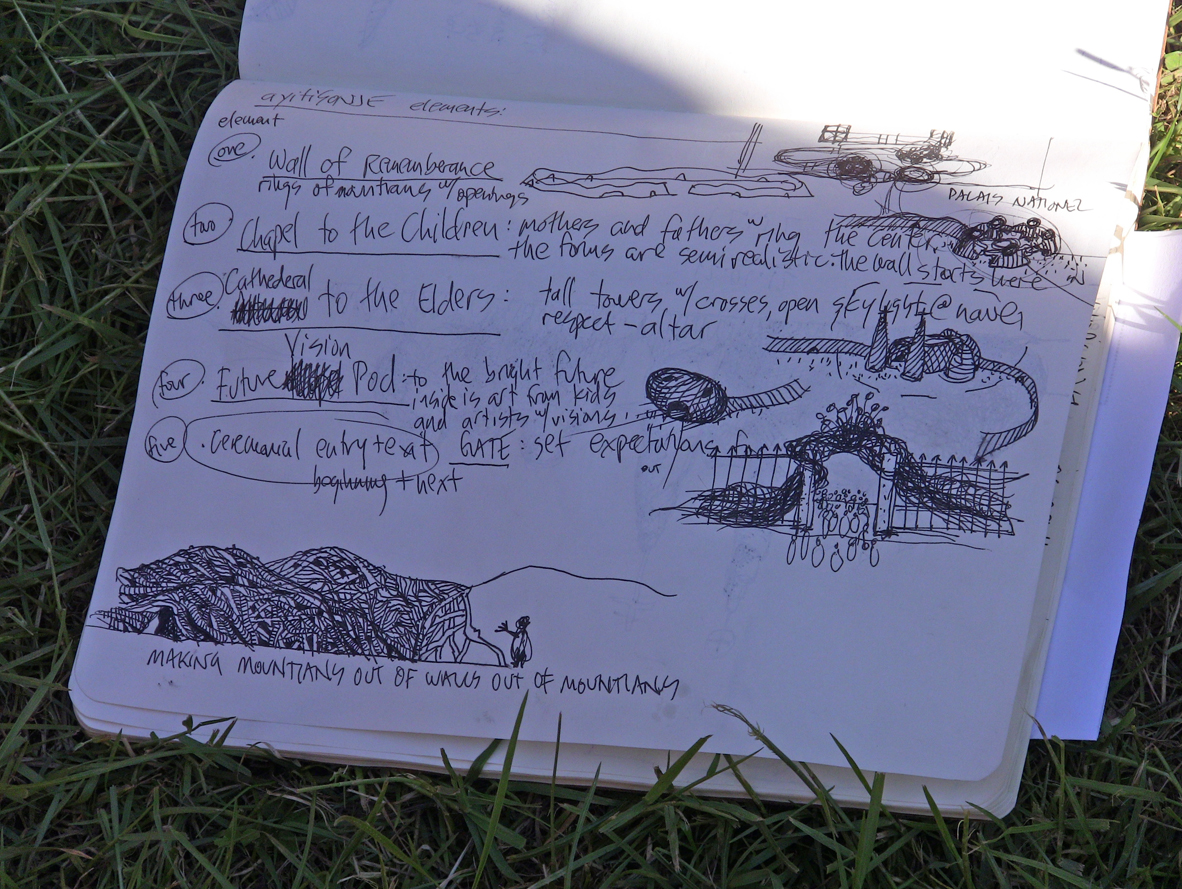 ayitisonje elements:
element
one. Wall of Rememberance
rings of mountians w/ openings
PALAIS NATIONEL
two Chapel to the Children: mothers and fathers ring the center.
the forms are semi realistic. the wall starts here
three. Cathederal to the Elders: tall towers w/ crosses, open skylight @ nave,
respect - altar
Vision
four. Future Pod: to the bright future
inside is art from kids
and artists w/ visions
five. Ceremonial entry + exit GATE: set expectations
out
beginning + next
MAKING MOUNTIANS OUT OF WALLS OUT OF MOUNTIANS